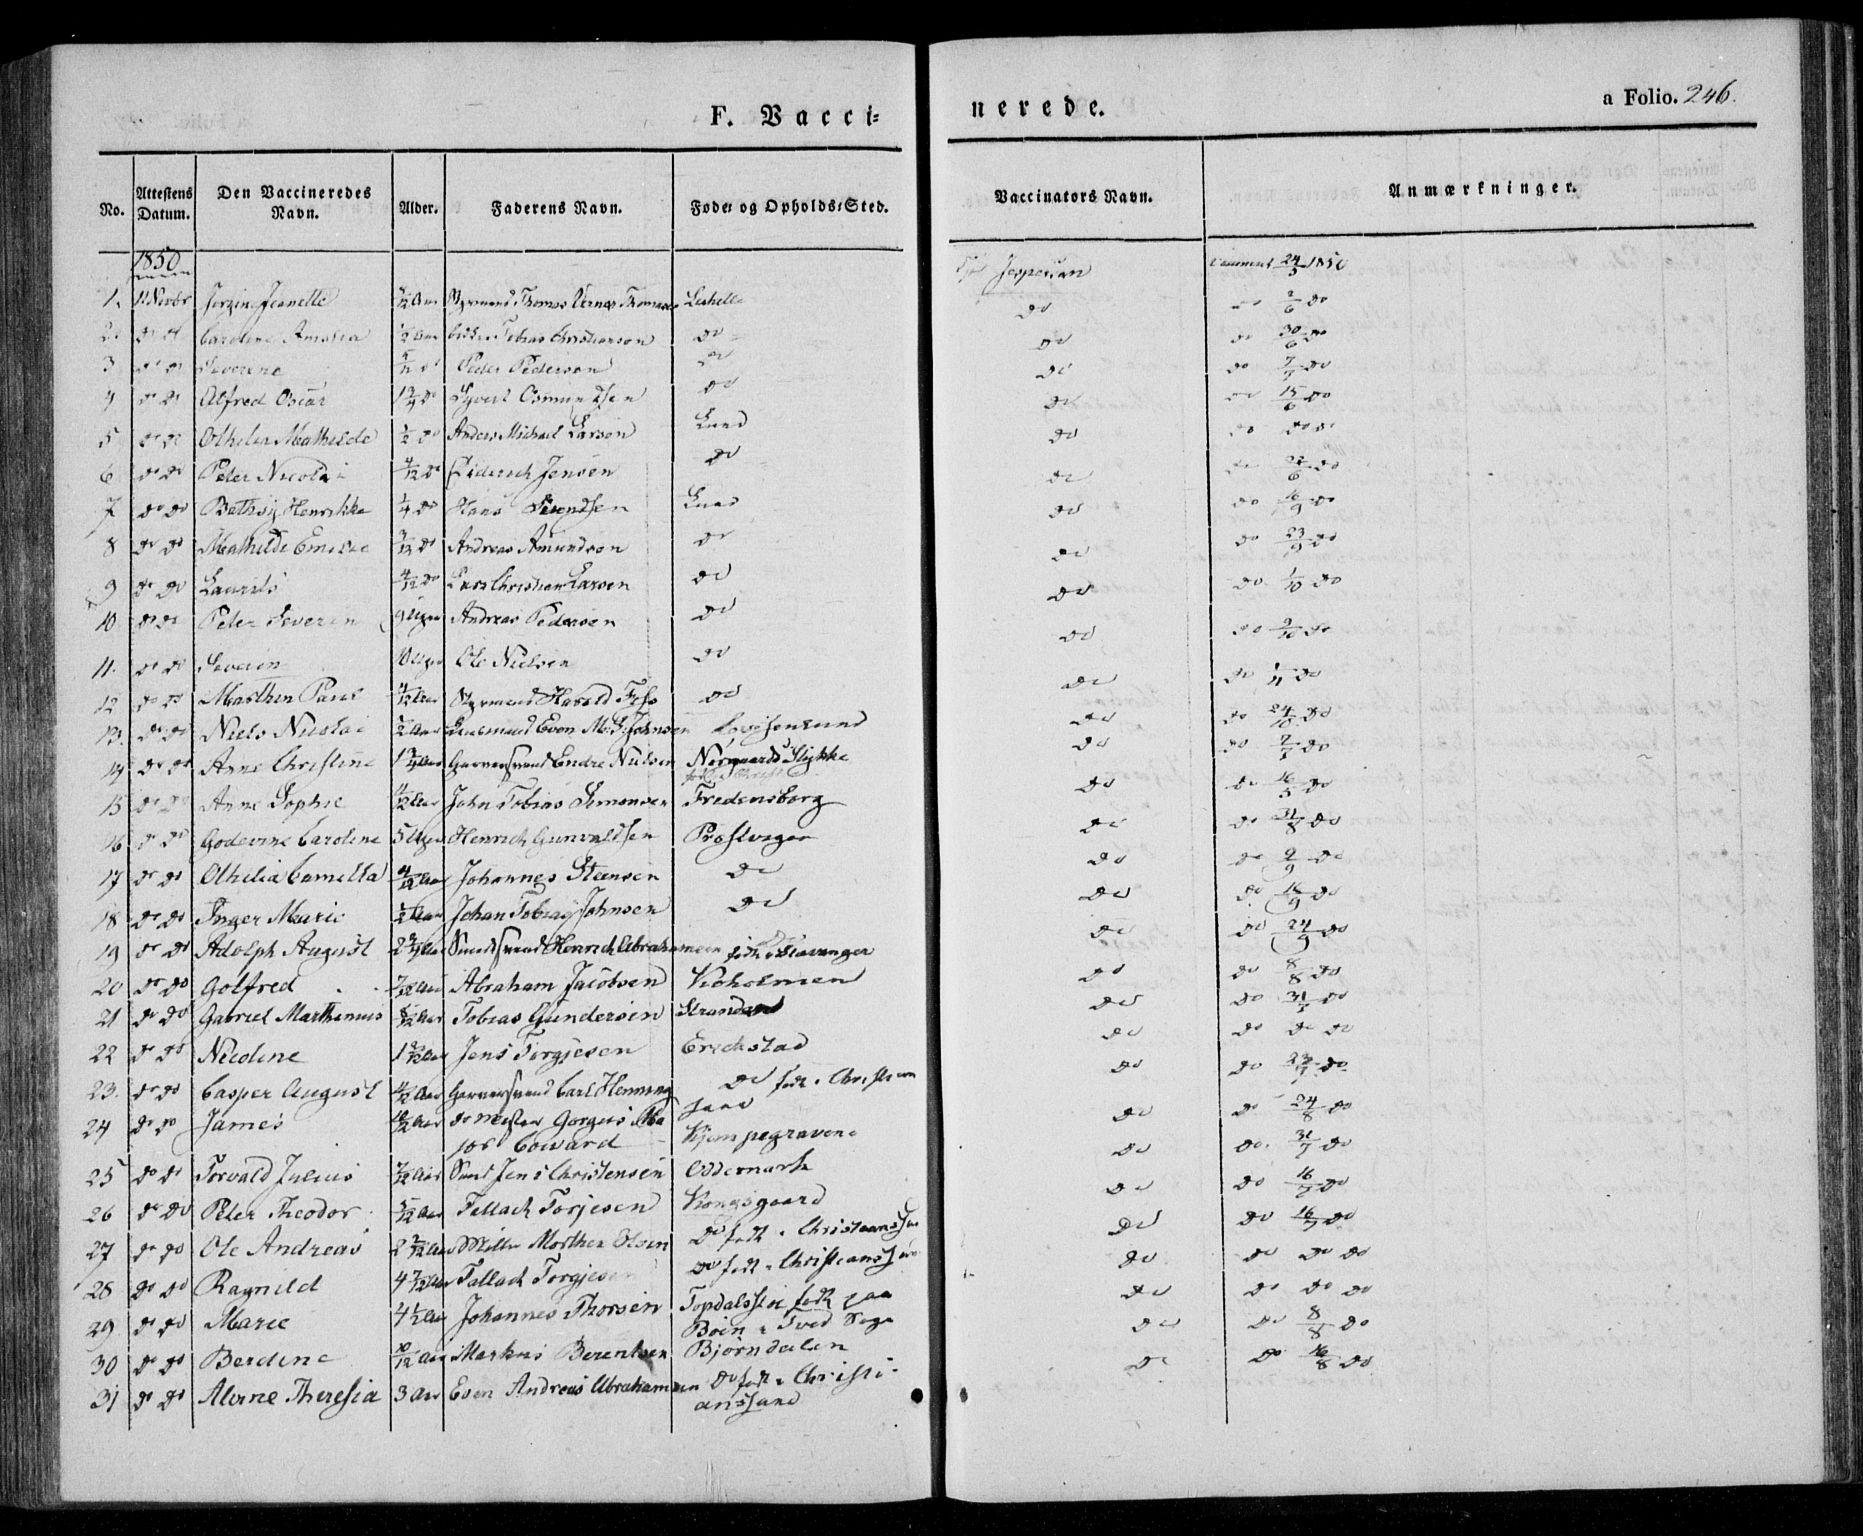 F. Vacci= nerede. a Folio. 246.
No. Attestens Datum. Den Vaccineredes Navn. Alder. Faderens Navn. Føde- og Opholds-Sted. Vaccinators Navn. Anmærkninger.
1850
1. 11 Novbr Jorgine Jeanette Styrmand Thomas Jespersen 24/5 1850
2. do do Caroline Amalia 1/2 Aar Tobias Christianson do do do 2/6 do
3 do do Severine Peder Pederson do do do 30/6 do
4 do do Alfred Oscar 1 3/4 do Syvert Osmundsen do do do 7/7 do
5 do do Othilia Mathilde 1/2 do Anders Michael Larson Lund do do 15/6 do
6 do do Peter Nicolai 4/12 do Diderich Jensen do do do do do
7 do do Bethsy Henrikke 1/4 do Hans Svendsen Lund do do 22/6 do
8 do do Mathilde Emilie 3/12 do Andreas Amundson do do do 16/9 do
9 do do Laurits 4/12 do Lars Christian Larsen do do do 23/9 do
10 do do Peter Severin 9 Uger Andreas Pedersen do do do 1/10 do
11. do do Severin 10 Uger Ole Nielsen do do do 2/10 do
12 do do Marthin Styrmand Harald do do do 1/11 do
13. do do Niels Nicolai Even M. S. Johnsen do do 24/10 do
14 do do Anne Christine 1 3/4 Aar Garversvend Endre Nielsen Nørgaards Stykke do do 7/7 do
15 do do Anne Sophie Aar John Tobias Simonsen Fredensborg do do 16/5 do
16 do do Godevine Caroline 5 Uger Henrich Gunvaldsen Prestvegen do do 31/8 do
17 do do Othilia Camilla Aar Johannes Steensen do do do 2/9 do
18 do do Inger Marie 1/2 Aar Johan Tobias Johnsen do do do 16/9 do
19 do do Adolph August Smedsvend Henrich Abrahamsen født i Stavanger do do 24/9 do
20 do do Golfred 7/12 Aar Abraham Jacobsen Kioholmen do do 8/8 do
21 do do Gabriel Marthinius Aar Tobias Gundersen Stranden do do 31/7 do
22 do do Nicoline Aar Jens Torgjesen Erickstad do do do do
23. do do Casper August Aar Garversvend Carl Henning do født i Christiansand do do 23/7 do
24 do do James 10/12 Aar do Mester Gorgus Major Coward Kjempegravene do do 24/8 do
25 do do Torvald Julius 7/12 Aar Smed Jens Christensen Oddernark do do 31/7 do
26 do do Peter Theodor 5/12 Aar Tallach Torjesen Kongsgaard do do 16/7 do
27 do do Ole Andreas Aar Morthen Olsen do født i Christianssand do do 16/7 do
28 do do Ragnild 4 7/12 Aar Tallach Torgjesen do født i Christianssand do do do do
29 do do Marie 4 1/2 Aar Johannes Thorsen Topdalssin født paa Boen i Tved Sogn do do do do
30 do do Berdine 10/12 Aar Markus Berentsen Bjørndalen do do 8/8 do
31 do do Alvine Theresia 3 Aar Even Andreas Abrahamsen do født i Christianssand do do 16/8 do